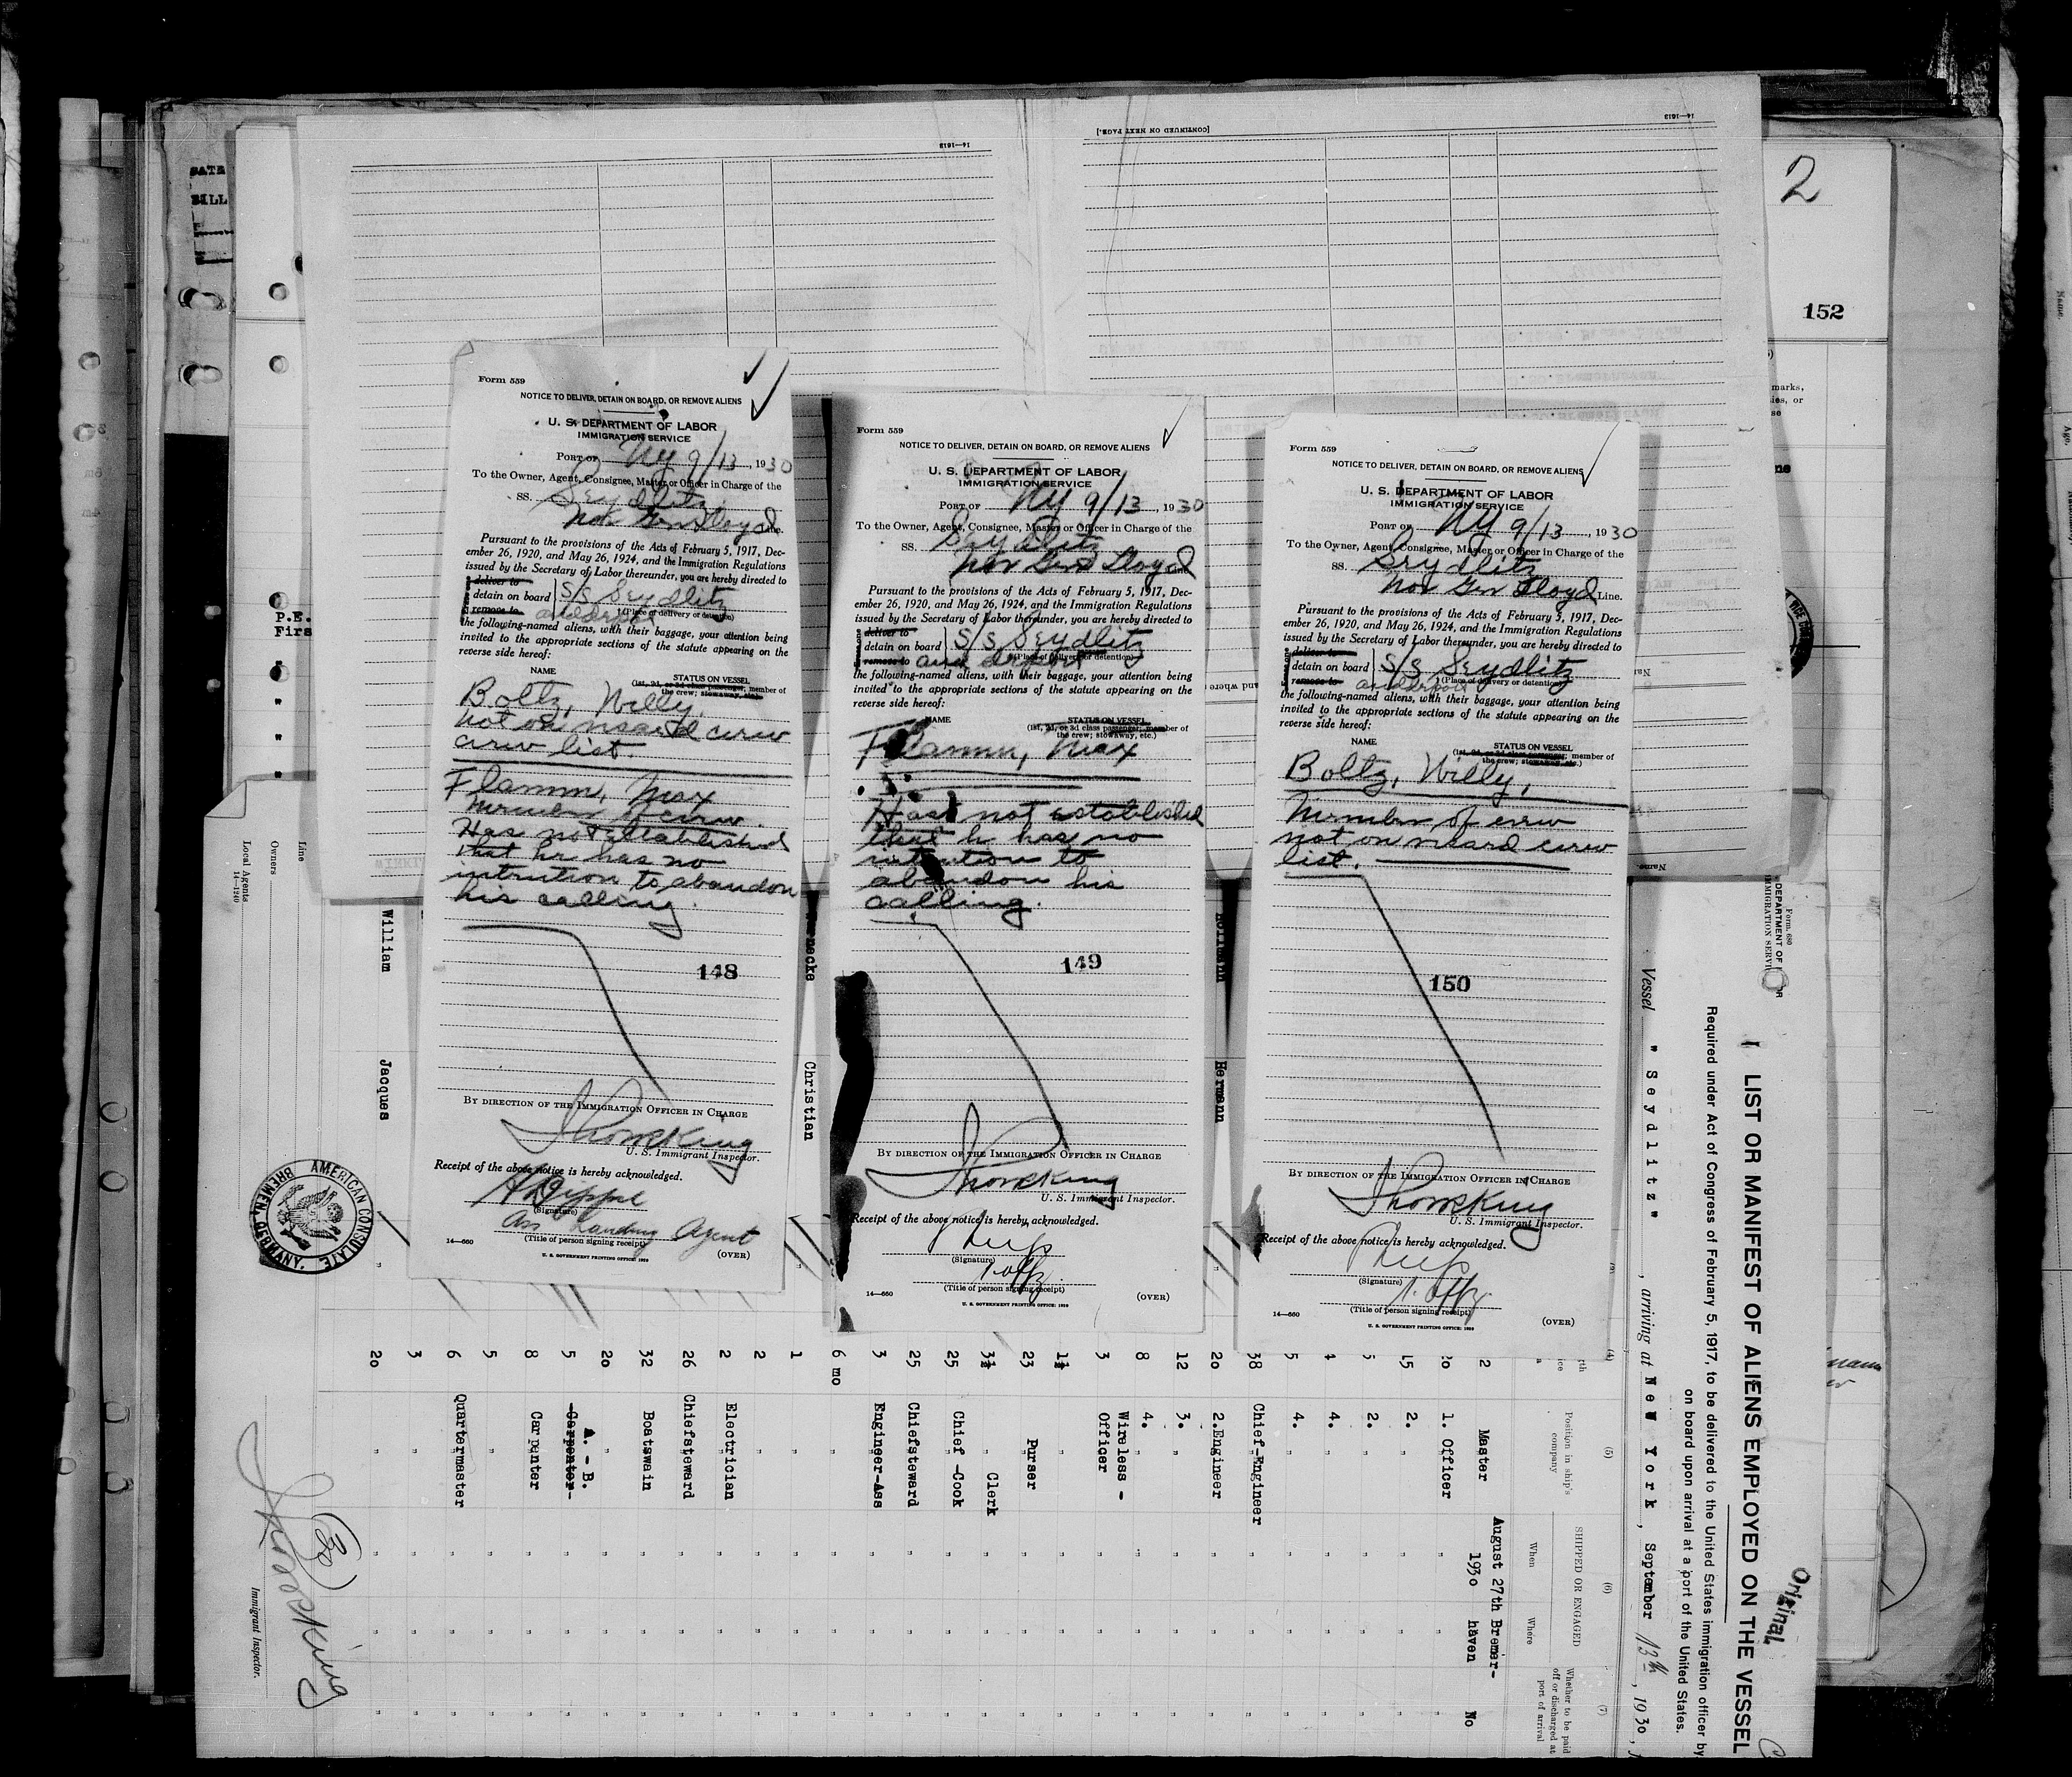 [CONTINUED ON NEXT PAGE.]
14—1613
14—1613
2
152
DATE
BILL
P.E.
Firs
marks,
ies, or
se
Form 559
NOTICE TO DELIVER, DETAIN ON BOARD, OR REMOVE ALIENS
U. S. DEPARTMENT OF LABOR
IMMIGRATION SERVICE
PORT OF NY 9/13, 1930
To the Owner, Agent, Consignee, Master or Officer in Charge of the
SS. Seydlitz
Nor Ger Lloyd Line.
Pursuant to the provisions of the Acts of February 5, 1917, Dec-
ember 26, 1920, and May 26, 1924, and the Immigration Regulations
issued by the Secretary of Labor thereunder, you are hereby directed to
deliver to
detain on board S/S Seydlitz
remove to and deport (Place of delivery or detention)
the following-named aliens, with their baggage, your attention being
invited to the appropriate sections of the statute appearing on the
reverse side hereof:
NAME STATUS ON VESSEL
(1st, 2d, or 3d class passenger, member of
the crew; stowaway, etc.)
Boltz, Willy,
not on visaed crew
crew list.
Flamm, Max
Member of crew.
Has not established
that he has no
intention to abandon
his calling.
148
BY DIRECTION OF THE IMMIGRATION OFFICER IN CHARGE
U. S. Immigrant Inspector.
Receipt of the above notice is hereby acknowledged.
(Signature)
Ass Landing Agent
(Title of person signing receipt)
14—660
U. S. GOVERNMENT PRINTING OFFICE: 1929
(OVER)
Form 559
NOTICE TO DELIVER, DETAIN ON BOARD, OR REMOVE ALIENS
U. S. DEPARTMENT OF LABOR
IMMIGRATION SERVICE
PORT OF NY 9/13, 1930
To the Owner, Agent, Consignee, Master or Officer in Charge of the
SS. Seydlitz
Nor Ger Lloyd Line
Pursuant to the provisions of the Acts of February 5, 1917, Dec-
ember 26, 1920, and May 26, 1924, and the Immigration Regulations
issued by the Secretary of Labor thereunder, you are hereby directed to
deliver to
detain on board S/S Seydlitz
remove to and deport (Place of delivery or detention)
the following-named aliens, with their baggage, your attention being
invited to the appropriate sections of the statute appearing on the
reverse side hereof:
NAME STATUS ON VESSEL
(1st, 2d, or 3d class passenger, member of
the crew; stowaway, etc.)
Flamm, Max
Has not established
that he has no
intention to
abandon his
calling.
149
BY DIRECTION OF THE IMMIGRATION OFFICER IN CHARGE
U. S. Immigrant Inspector.
Receipt of the above notice is hereby acknowledged.
(Signature)
1. Offz.
(Title of person signing receipt)
14—660
U. S. GOVERNMENT PRINTING OFFICE: 1929
(OVER)
Form 559
NOTICE TO DELIVER, DETAIN ON BOARD, OR REMOVE ALIENS
U. S. DEPARTMENT OF LABOR
IMMIGRATION SERVICE
PORT OF NY 9/13, 1930
To the Owner, Agent, Consignee, Master or Officer in Charge of the
SS. Seydlitz
Nor Ger Lloyd Line.
Pursuant to the provisions of the Acts of February 5, 1917, Dec-
ember 26, 1920, and May 26, 1924, and the Immigration Regulations
issued by the Secretary of Labor thereunder, you are hereby directed to
deliver to
detain on board S/S Seydlitz
remove to and deport (Place of delivery or detention)
the following-named aliens, with their baggage, your attention being
invited to the appropriate sections of the statute appearing on the
reverse side hereof:
NAME STATUS ON VESSEL
(1st, 2d, or 3d class passenger, member of
the crew; stowaway, etc.)
Boltz, Willy,
Member of crew
not on visaed crew
list.
150
BY DIRECTION OF THE IMMIGRATION OFFICER IN CHARGE
U. S. Immigrant Inspector.
Receipt of the above notice is hereby acknowledged.
(Signature)
1. Offz.
(Title of person signing receipt)
14—660
U. S. GOVERNMENT PRINTING OFFICE: 1929
(OVER)
Original
LIST OR MANIFEST OF ALIENS EMPLOYED ON THE VESSEL
Required under Act of Congress of February 5, 1917, to be delivered to the United States immigration officer by
on board upon arrival at a port of the United States.
Vessel "Seydlitz", arriving at New York, September 13th, 1930,
Form 680
(4) (5) (6) (7)
Position in ship's
company
SHIPPED OR ENGAGED
When Where
Whether to be paid
off or discharged at
port of arrival
2 Master August 27th Bremer-
1930 haven No
20 1. Officer " " "
15 2. " " " "
5 2. " " " "
4 4. " " " "
5 4. " " " "
38 Chief-Engineer " " "
Hermann 20 2.Engineer " " "
12 3. " " " "
8 4. " " " "
3 Wireless -
Officer " " "
1½ " " " "
23 Purser " " "
3½ Clerk " " "
25 Chief -Cook " " "
25 Chiefsteward " " "
3 Engineer-Ass " " "
Christian 6 mo " " "
1 " " " "
2 " " " "
2 Electrician " " "
26 Chiefsteward " " "
32 Boatswain " " "
20 " " " "
5 A. - B.
Carpenter- " " "
8 Carpenter " " "
5 " " " "
6 Quartermaster " " "
3 " " " "
William Jacques " 20 " " " "
Line
Owners
Local Agents
14—1240
AMERICAN CONSULATE
BREMEN, GERMANY.
Immigrant Inspector.